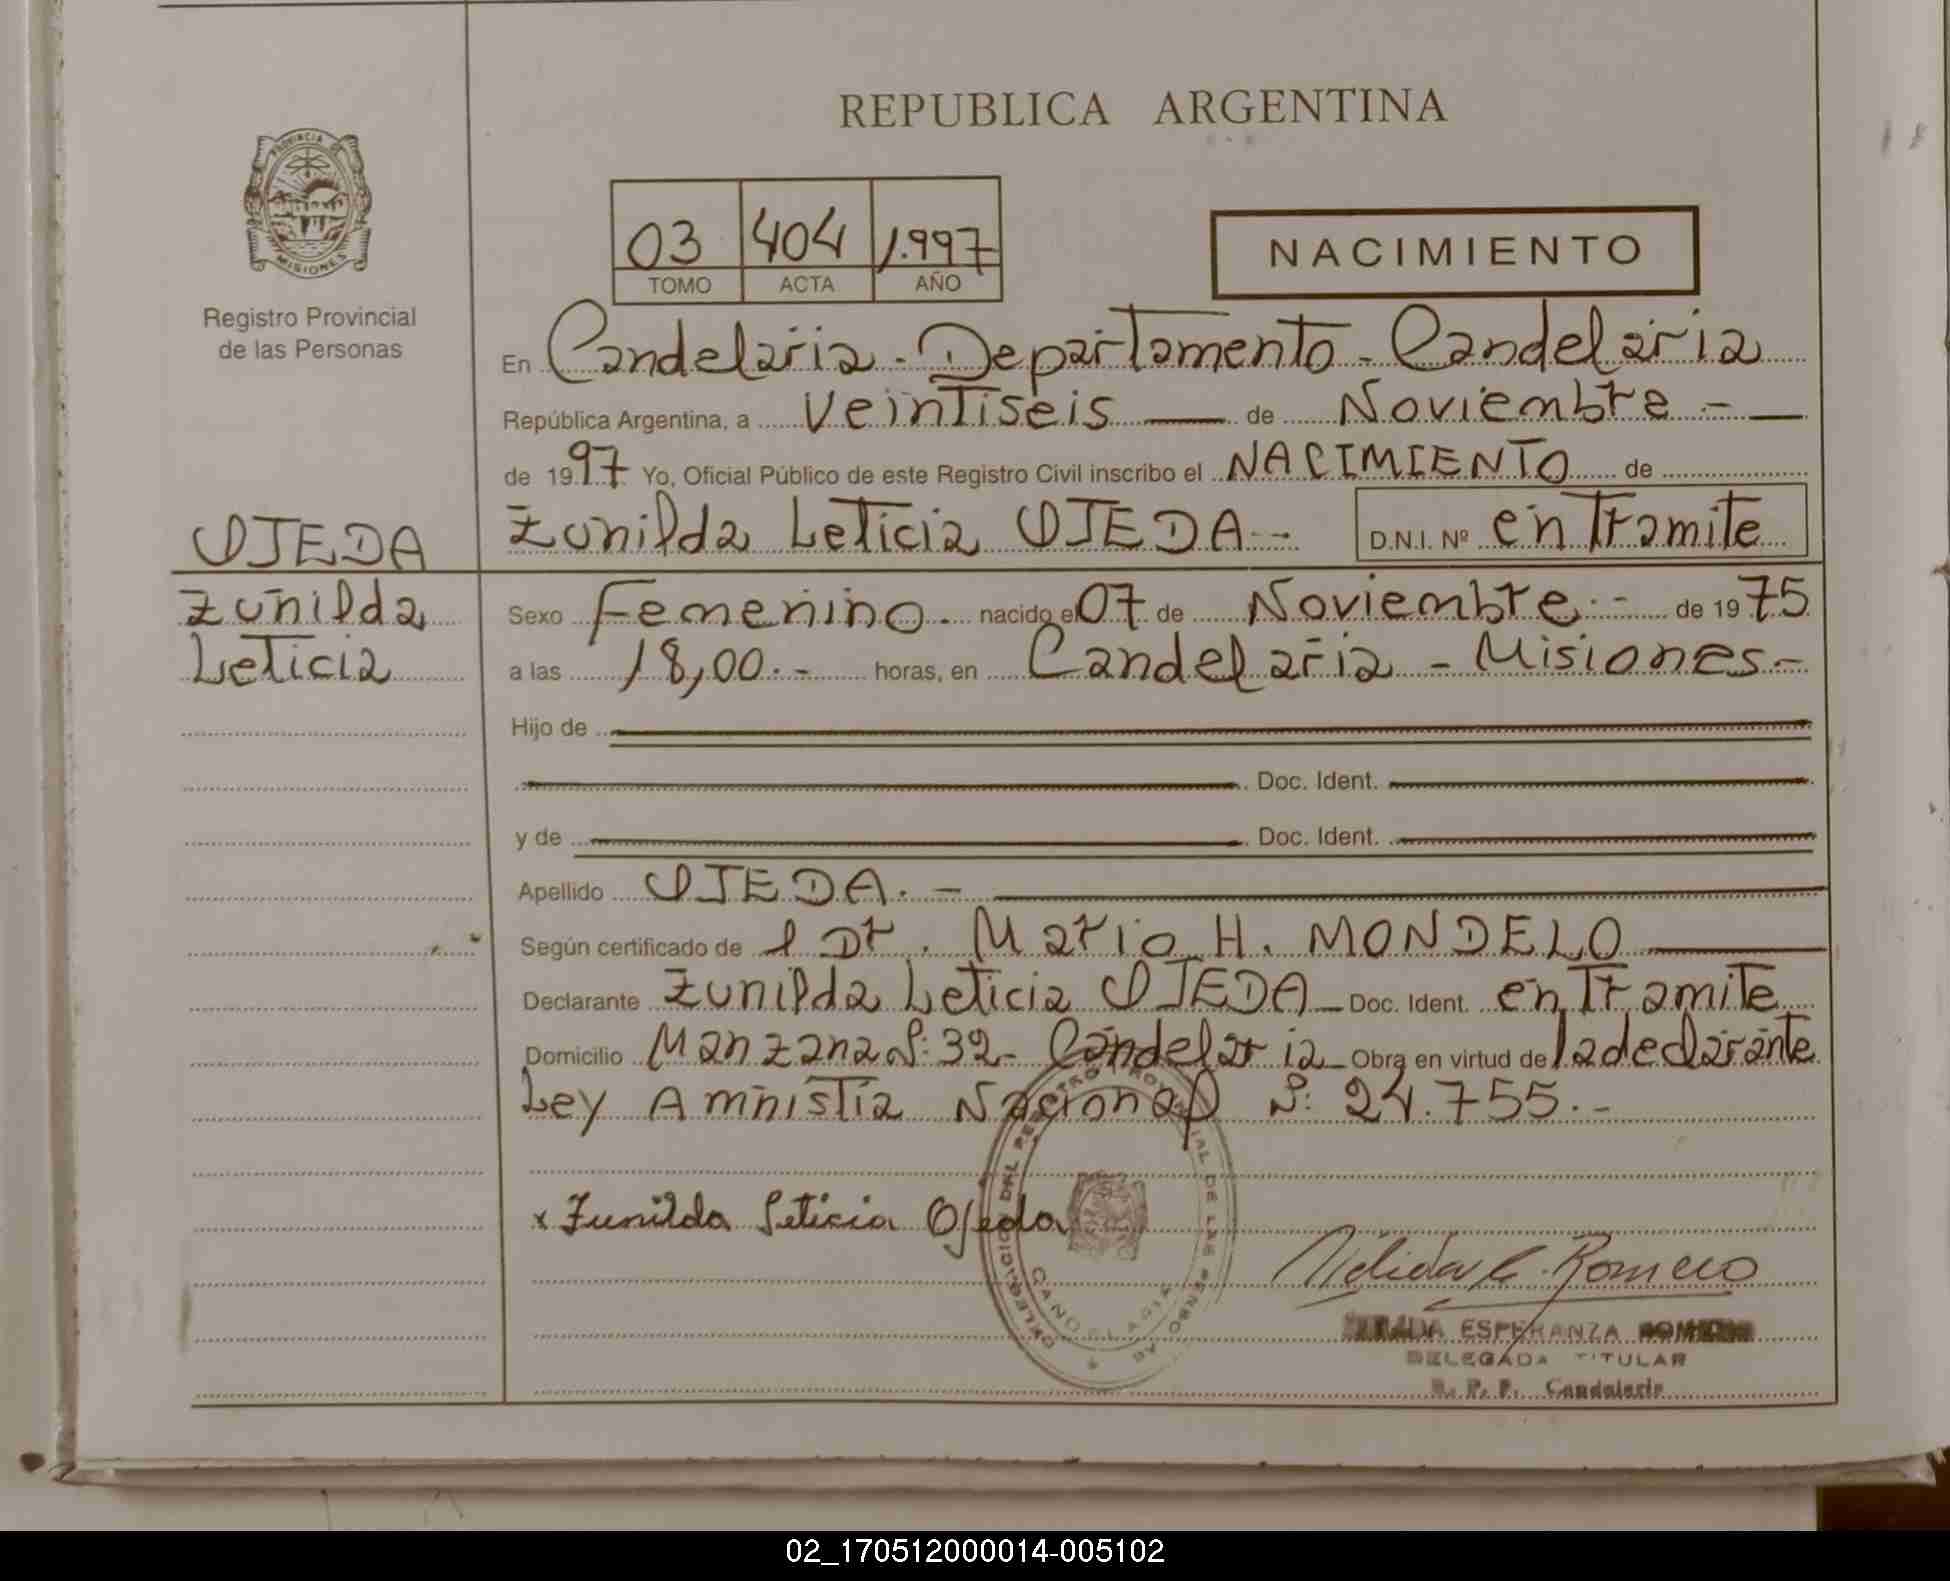 REPUBLICA ARGENTINA
PROVINCIA DE
MISIONES
Registro Provincial
de las Personas
03 404 1.997
TOMO ACTA AÑO
NACIMIENTO
En Candelaria - Departamento - Candelaria
República Argentina, a Veintiseis de Noviembre.-
de 1997 Yo, Oficial Público de este Registro Civil inscribo el NACIMIENTO de
Zunilda Leticia OJEDA.- D.N.I. Nº en Tramite
OJEDA
Zunilda
Leticia
Sexo Femenino. nacido el 07 de Noviembre.- de 1975
a las 18,00.- horas, en Candelaria - Misiones-
Hijo de
Doc. Ident.
y de Doc. Ident.
Apellido OJEDA.-
Según certificado de l Dr. Mario H. MONDELO
Declarante Zunilda Leticia OJEDA- Doc. Ident. en Tramite
Domicilio Manzana N: 32- Candelaria- Obra en virtud de la declarante
Ley Amnistia Nacional N: 24.755.-
x Zunilda Leticia Ojeda
DELEGACION DEL REGISTRO PROVINCIAL DE LAS PERSONAS
CANDELARIA
Romero
ESPERANZA ROMERO
DELEGADA TITULAR
R. P. P. Candelaria
02_170512000014-005102